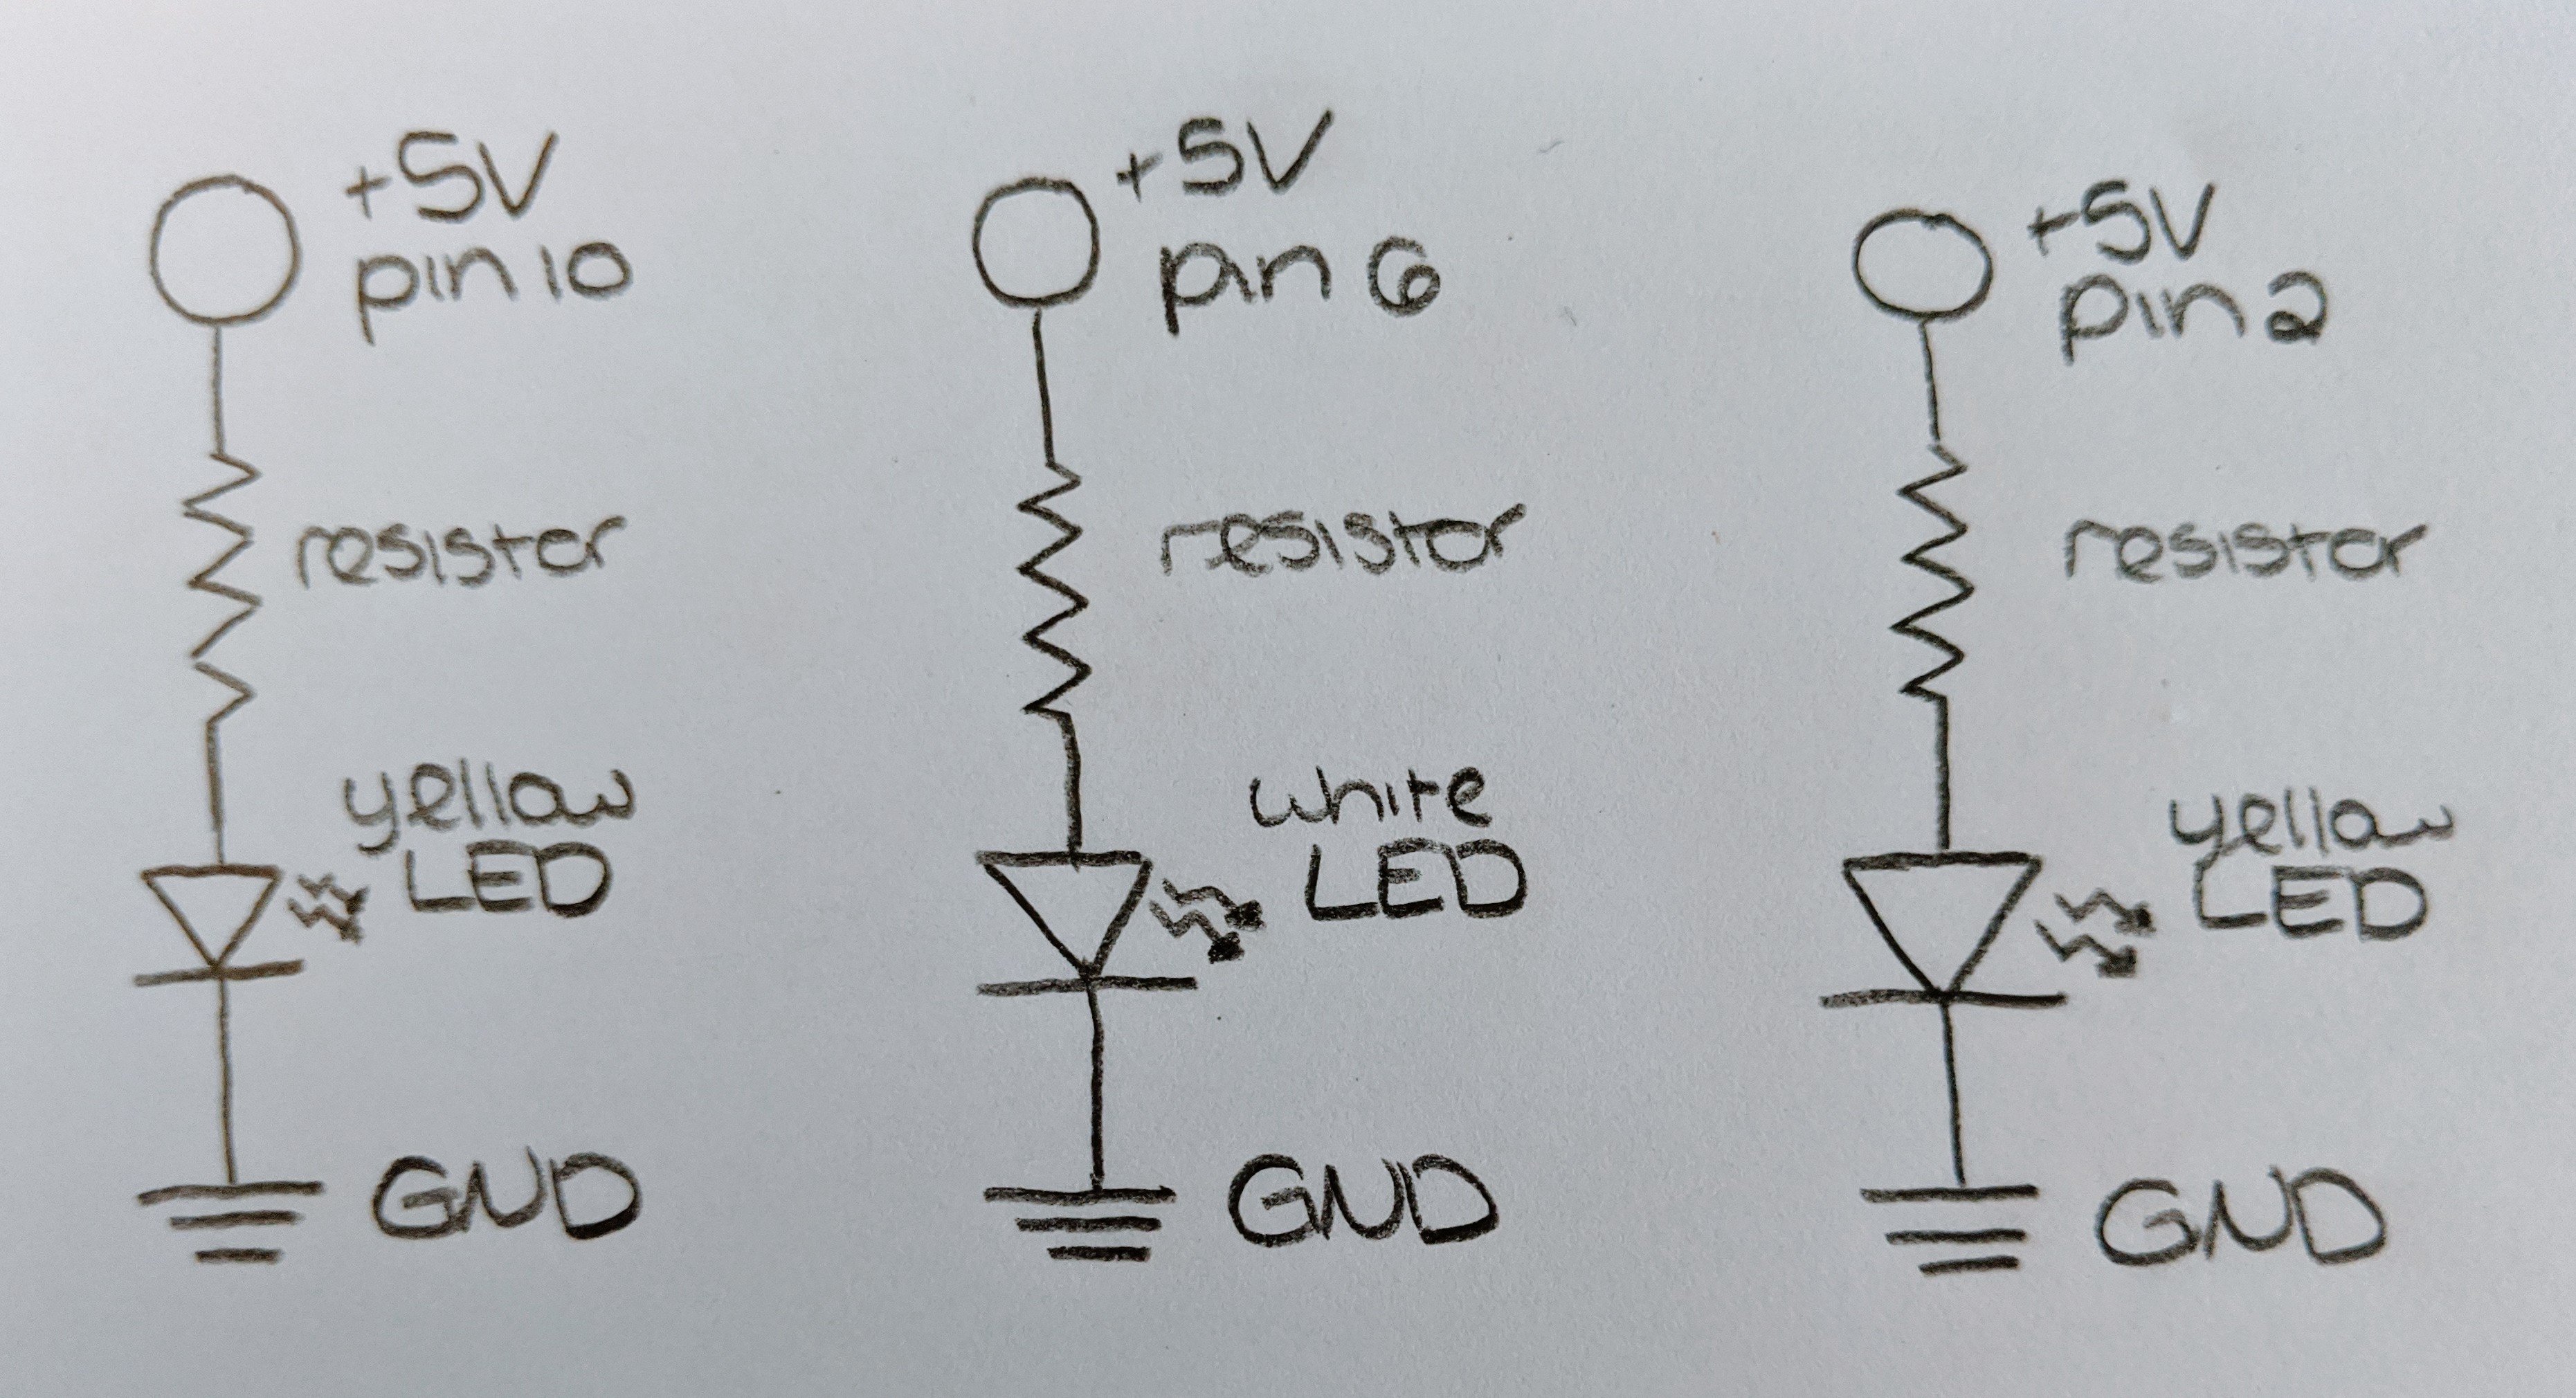 +5V
pin 10
resistor
yellow
LED
GND
+5V
pin 6
resistor
white
LED
GND
+5V
pin 2
resistor
yellow
LED
GND